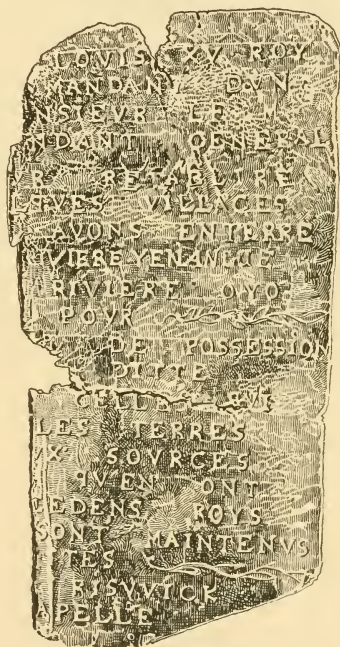 LOVIS XV ROY
MANDANT DVN
NSIEVR LE
NDANT GENERAL
RETABLIRE
LQVES VILLAGES
AVONS ENTERRE
IVIERE YENANGUE
RIVIERE OYO
POVR
DE POSSESSION
DITTE
CELLE QVI
LES TERRES
VX SOVRCES
QVEN ONT
CEDENS ROYS
SONT MAINTENVS
TES
RISVVICK
APELLE